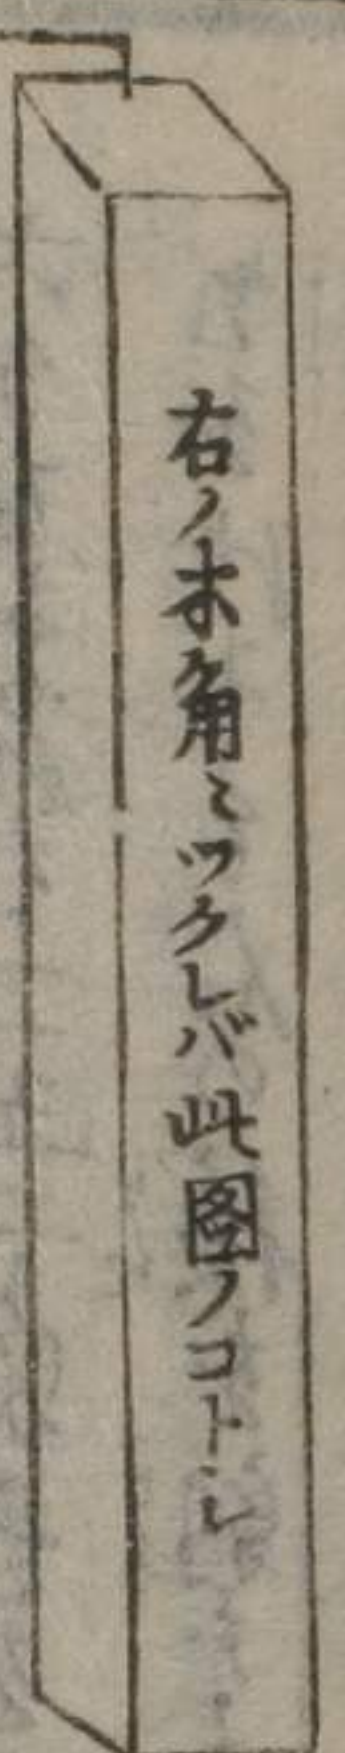 右ノ木角ミツクレバ此圖ノコトシ